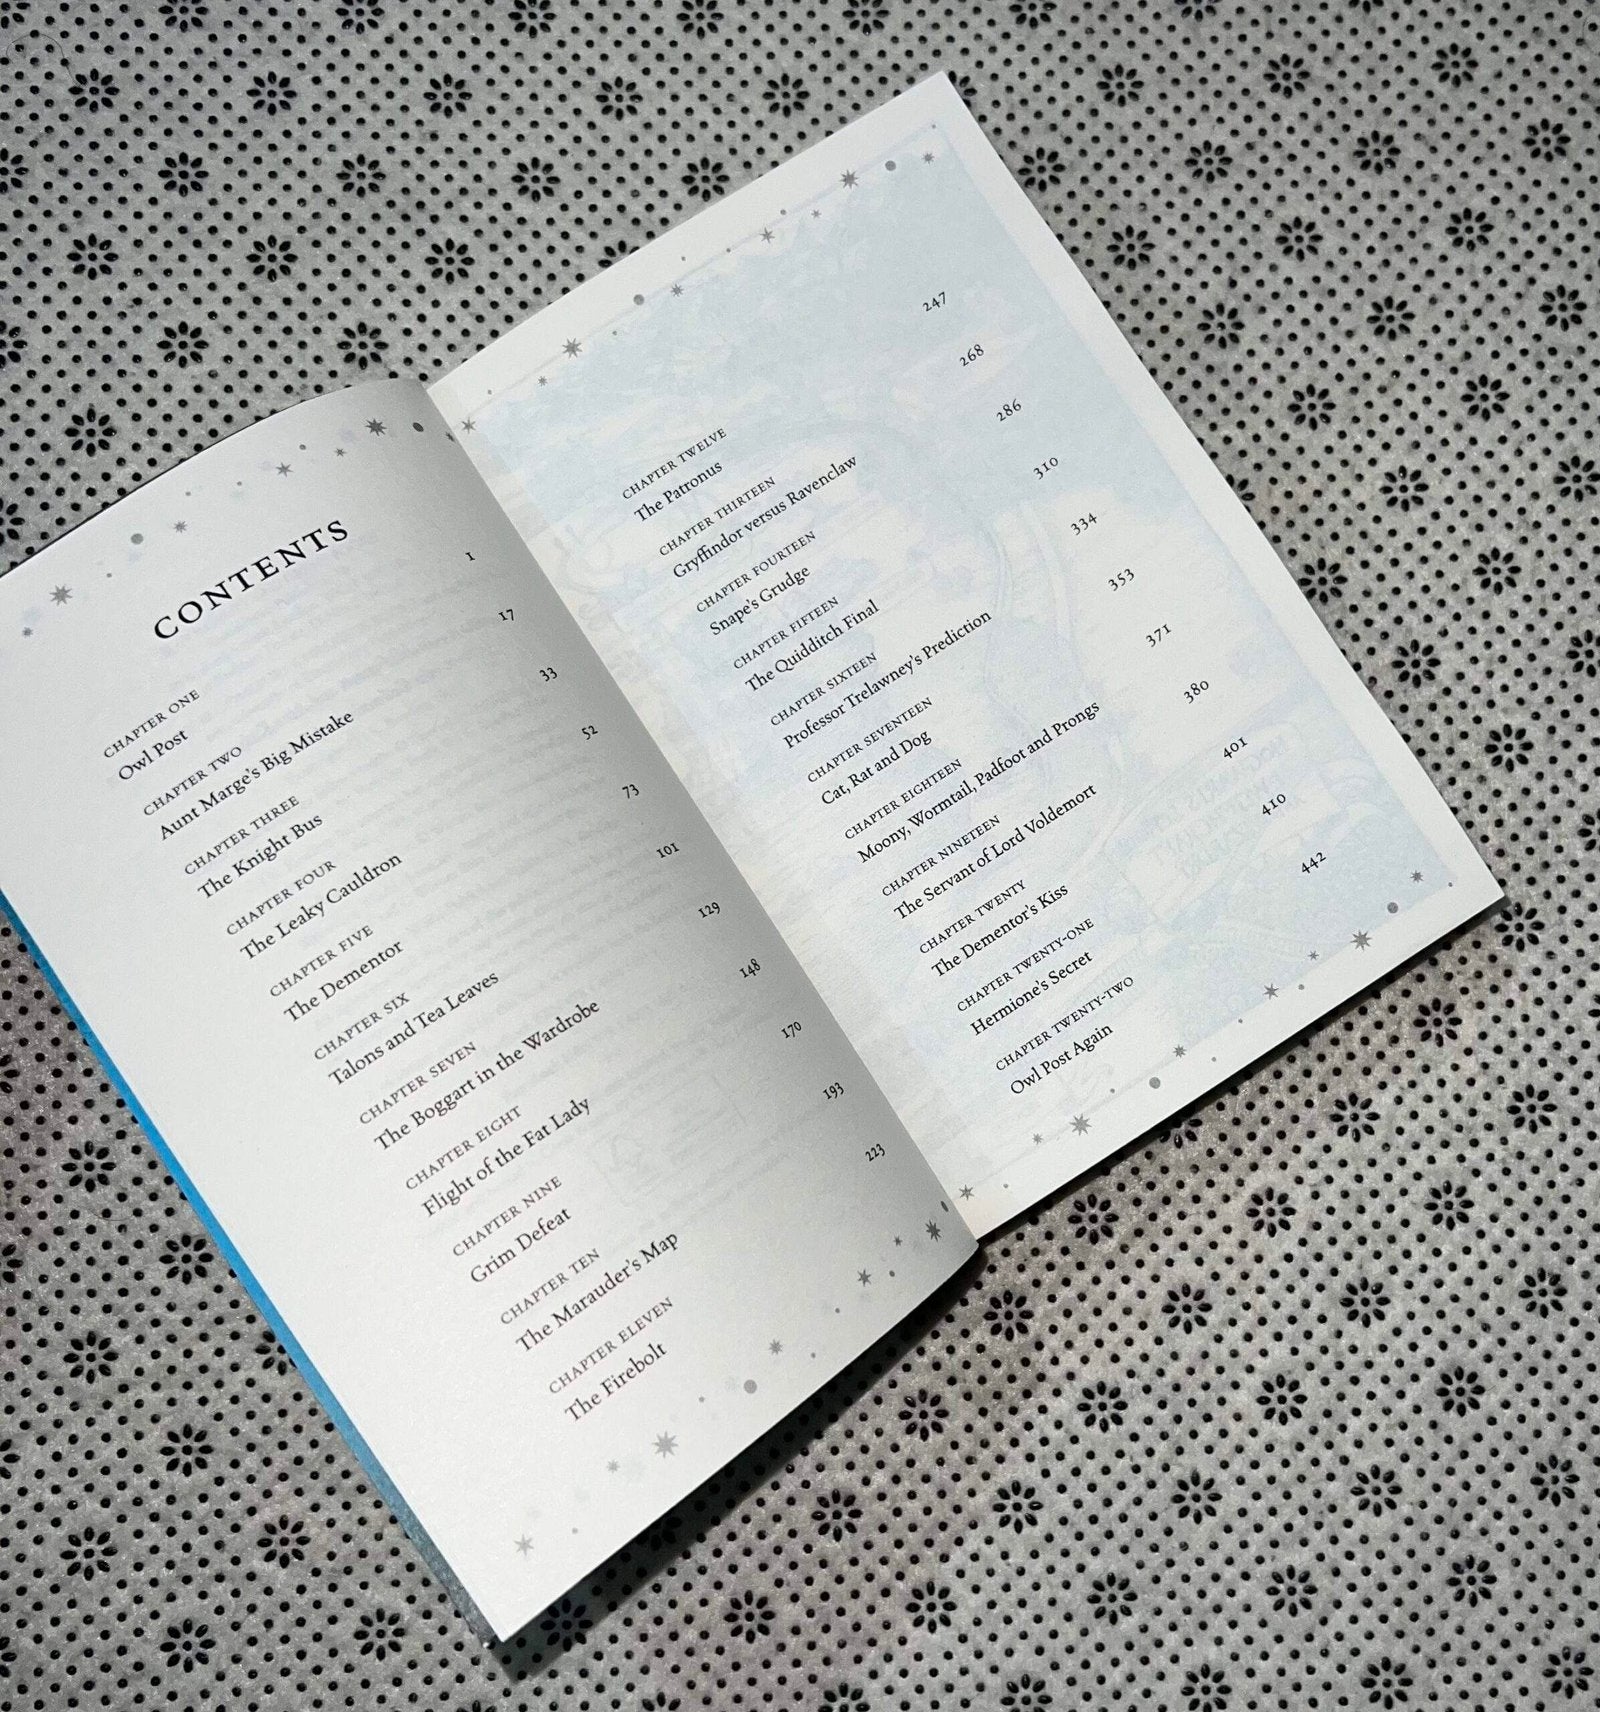 CONTENTS
CHAPTER ONE
Owl Post 1
CHAPTER TWO
Aunt Marge's Big Mistake 17
CHAPTER THREE
The Knight Bus 33
CHAPTER FOUR
The Leaky Cauldron 52
CHAPTER FIVE
The Dementor 73
CHAPTER SIX
Talons and Tea Leaves 101
CHAPTER SEVEN
The Boggart in the Wardrobe 129
CHAPTER EIGHT
Flight of the Fat Lady 148
CHAPTER NINE
Grim Defeat 170
CHAPTER TEN
The Marauder's Map 193
CHAPTER ELEVEN
The Firebolt 223
CHAPTER TWELVE
The Patronus 247
CHAPTER THIRTEEN
Gryffindor versus Ravenclaw 268
CHAPTER FOURTEEN
Snape's Grudge 286
CHAPTER FIFTEEN
The Quidditch Final 310
CHAPTER SIXTEEN
Professor Trelawney's Prediction 334
CHAPTER SEVENTEEN
Cat, Rat and Dog 353
CHAPTER EIGHTEEN
Moony, Wormtail, Padfoot and Prongs 371
CHAPTER NINETEEN
The Servant of Lord Voldemort 380
CHAPTER TWENTY
The Dementor's Kiss 401
CHAPTER TWENTY-ONE
Hermione's Secret 410
CHAPTER TWENTY-TWO
Owl Post Again 442